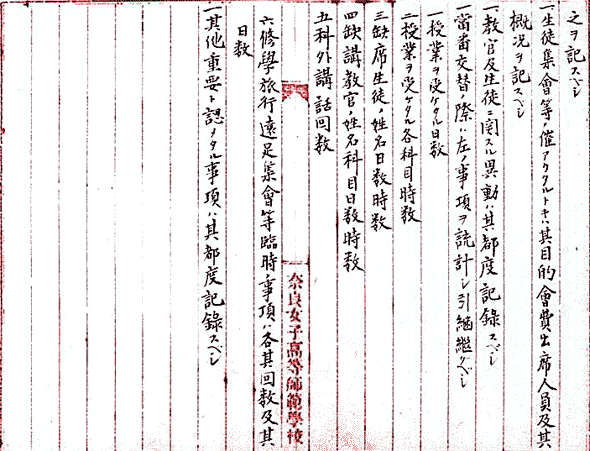 之ヲ記スベシ
一、生徒集會等ノ催アリタルトキハ其目的會費出席人員及其
概况ヲ記スベシ
一、教官及生徒ニ関スル異動ハ其都度記録スベシ
一、當番交替ノ際ハ左ノ事項ヲ統計シ引継グベシ
一授業ヲ受ケタル日数
二授業ヲ受ケタル各科目時数
三缺席生徒ノ姓名日数時数
四缺講教官ノ姓名科目日数時数
五科外講話回数
奈良女子高等師範學校
六修學旅行遠足集會等臨時ノ事項ハ各其回数及其
日数
一其他重要ト認メタル事項ハ其都度記録スベシ